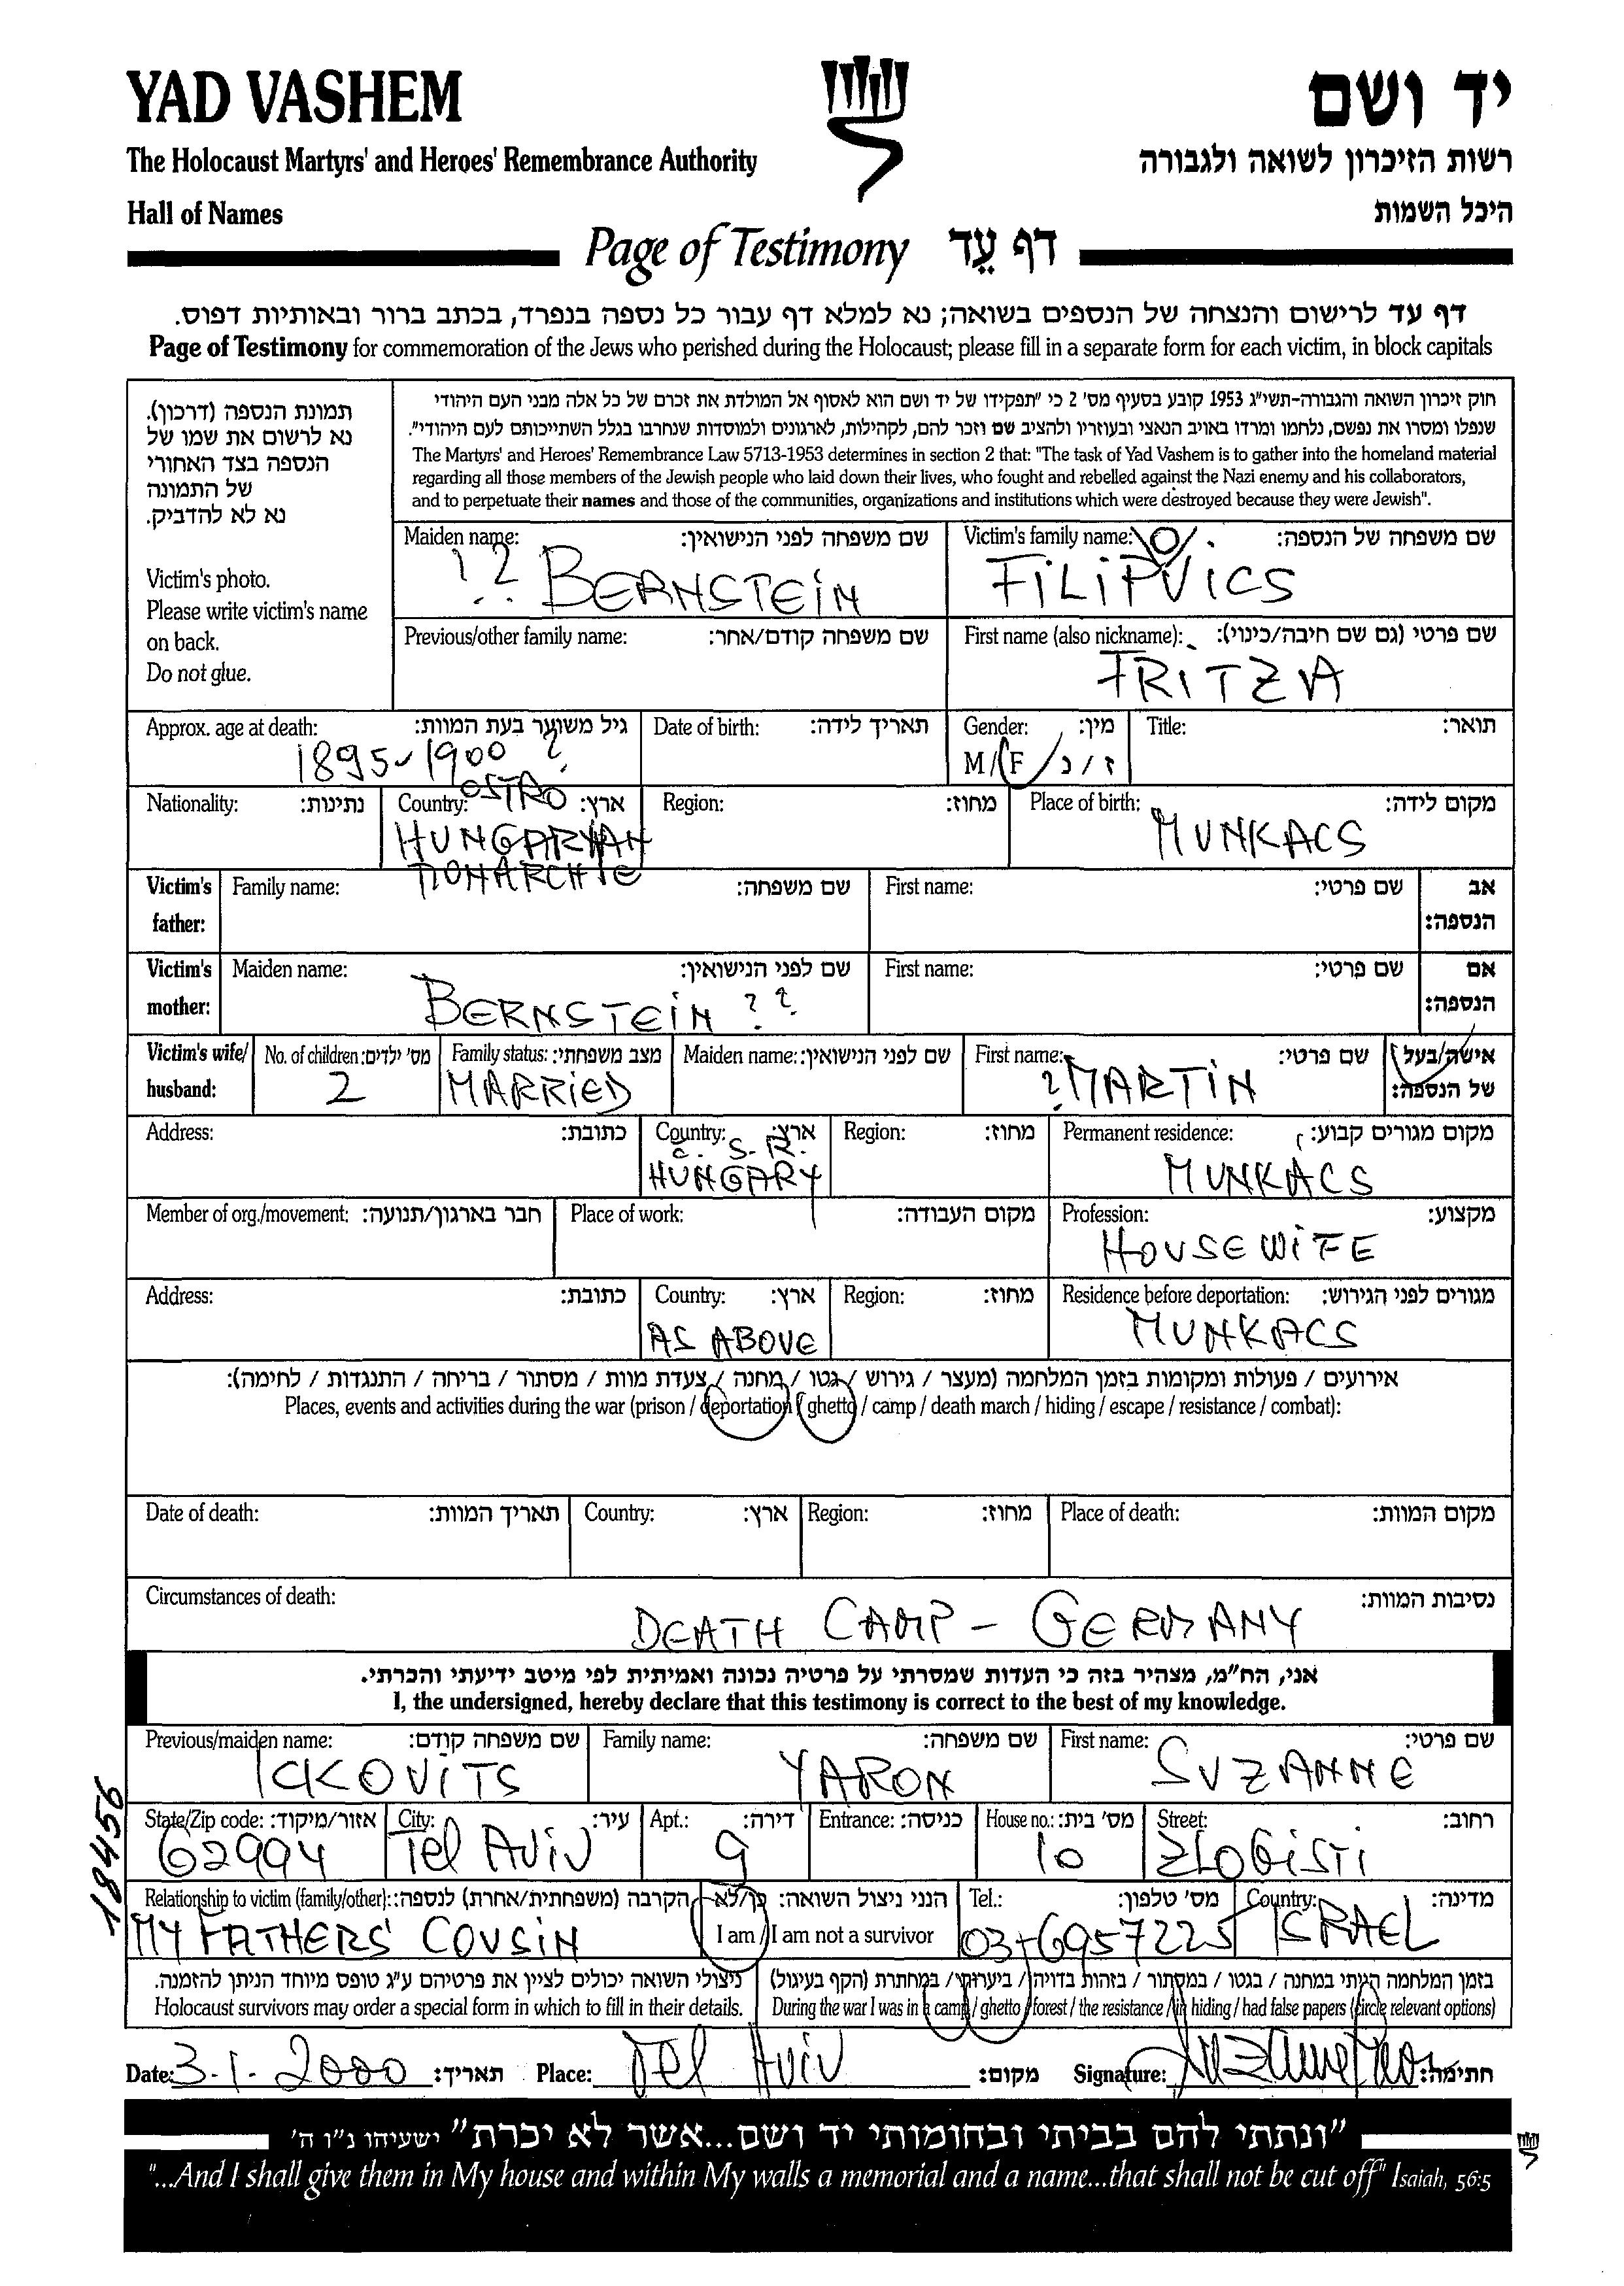 YAD VASHEM
יד ושם
The Holocaust Martyrs' and Heroes' Remembrance Authority
רשות הזיכרון לשואה ולגבורה
Hall of Names
היכל השמות
Page of Testimony דף עֵד
דף עד לרישום והנצחה של הנספים בשואה; נא למלא דף עבור כל נספה בנפרד, בכתב ברור ובאותיות דפוס.
Page of Testimony for commemoration of the Jews who perished during the Holocaust; please fill in a separate form for each victim, in block capitals
תמונת הנספה (דרכון).
נא לרשום את שמו של
הנספה בצד האחורי
של התמונה
נא לא להדביק.
Victim's photo.
Please write victim's name
on back.
Do not glue.
חוק זיכרון השואה והגבורה-תשי"ג 1953 קובע בסעיף מס' 2 כי "תפקידו של יד ושם הוא לאסוף אל המולדת את זכרם של כל אלה מבני העם היהודי
שנפלו ומסרו את נפשם, נלחמו ומרדו באויב הנאצי ובעוזריו ולהציב שם וזכר להם, לקהילות, לארגונים ולמוסדות שנחרבו בגלל השתייכותם לעם היהודי".
The Martyrs' and Heroes' Remembrance Law 5713-1953 determines in section 2 that: "The task of Yad Vashem is to gather into the homeland material
regarding all those members of the Jewish people who laid down their lives, who fought and rebelled against the Nazi enemy and his collaborators,
and to perpetuate their names and those of the communities, organizations and institutions which were destroyed because they were Jewish".
Maiden name: שם משפחה לפני הנישואין: Victim's family name: שם משפחה של הנספה:
?? BERNSTEIN FILIPOVICS
Previous/other family name: שם משפחה קודם/אחר: First name (also nickname): שם פרטי (גם שם חיבה/כינוי):
FRITZA
Approx. age at death: גיל משוער בעת המוות: Date of birth: תאריך לידה: Gender: מין: Title: תואר:
1895-1900 ? M/F ז/נ
Nationality: נתינות: Country: ארץ: Region: מחוז: Place of birth: מקום לידה:
OSTRO
HUNGARYAN MUNKACS
MONARCHIE
Victim's father: Family name: שם משפחה: First name: שם פרטי: אב הנספה:
Victim's mother: Maiden name: שם לפני הנישואין: First name: שם פרטי: אם הנספה:
BERNSTEIN ??
Victim's wife/ husband: No. of children: מס' ילדים: Family status: מצב משפחתי: Maiden name: שם לפני הנישואין: First name: שם פרטי: אישה/בעל של הנספה:
2 MARRIED ?MARTIN
Address: כתובת: Country: ארץ: Region: מחוז: Permanent residence: מקום מגורים קבוע:
C. S. R.
HUNGARY MUNKACS
Member of org./movement: חבר בארגון/תנועה: Place of work: מקום העבודה: Profession: מקצוע:
HOUSEWIFE
Address: כתובת: Country: ארץ: Region: מחוז: Residence before deportation: מגורים לפני הגירוש:
AS ABOVE MUNKACS
אירועים / פעולות ומקומות בזמן המלחמה (מעצר / גירוש / גטו / מחנה / צעדת מוות / מסתור / בריחה / התנגדות / לחימה):
Places, events and activities during the war (prison / deportation / ghetto / camp / death march / hiding / escape / resistance / combat):
Date of death: תאריך המוות: Country: ארץ: Region: מחוז: Place of death: מקום המוות:
Circumstances of death: נסיבות המוות:
DEATH CAMP - GERMANY
אני, הח"מ, מצהיר בזה כי העדות שמסרתי על פרטיה נכונה ואמיתית לפי מיטב ידיעתי והכרתי.
I, the undersigned, hereby declare that this testimony is correct to the best of my knowledge.
Previous/maiden name: שם משפחה קודם: Family name: שם משפחה: First name: שם פרטי:
ICKOVITS YARON SUZANNE
State/Zip code: אזור/מיקוד: City: עיר: Apt.: דירה: Entrance: כניסה: House no.: מס' בית: Street: רחוב:
62994 Tel Aviv 9 10 ZLOGISTI
Relationship to victim (family/other): הקרבה (משפחתית/אחרת) לנספה: הנני ניצול השואה: כן/לא Tel.: מס' טלפון: Country: מדינה:
MY FATHERS' COUSIN I am / I am not a survivor 03-6957225 ISRAEL
ניצולי השואה יכולים לציין את פרטיהם ע"ג טופס מיוחד הניתן להזמנה. בזמן המלחמה הייתי במחנה / בגטו / במסתור / בזהות בדויה / ביערות / במחתרת (הקף בעיגול)
Holocaust survivors may order a special form in which to fill in their details. During the war I was in a camp / ghetto / forest / the resistance / in hiding / had false papers (circle relevant options)
Date: 3.1.2000 תאריך: Place: Tel Aviv מקום: Signature: חתימה:
18456
"ונתתי להם בביתי ובחומותי יד ושם...אשר לא יכרת" ישעיהו נ"ו ה'
"...And I shall give them in My house and within My walls a memorial and a name...that shall not be cut off" Isaiah, 56:5